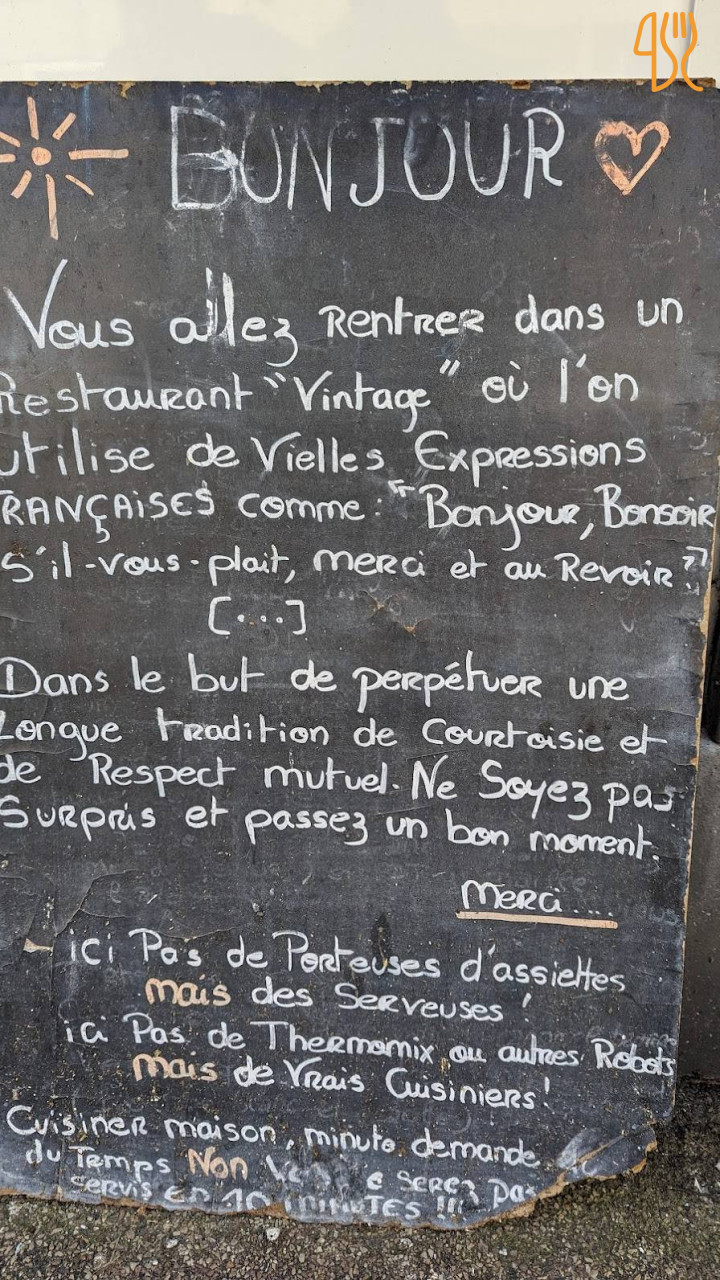 BONJOUR
Vous allez Rentrer dans un
Restaurant "Vintage" où l'on
utilise de Vielles Expressions
FRANÇAISES comme : "Bonjour, Bonsoir
S'il-vous-plait, merci et au Revoir"
[....]
Dans le but de perpétuer une
Longue tradition de Courtoisie et
de Respect mutuel. Ne Soyez pas
Surpris et passez un bon moment.
Merci....
ici Pas de Porteuses d'assiettes
mais des Serveuses !
ici Pas de Thermomix ou autres Robots
mais de Vrais Cuisiniers!
Cuisiner maison, minute demande
du Temps Non serez pas
servis en 10 minutes !!!